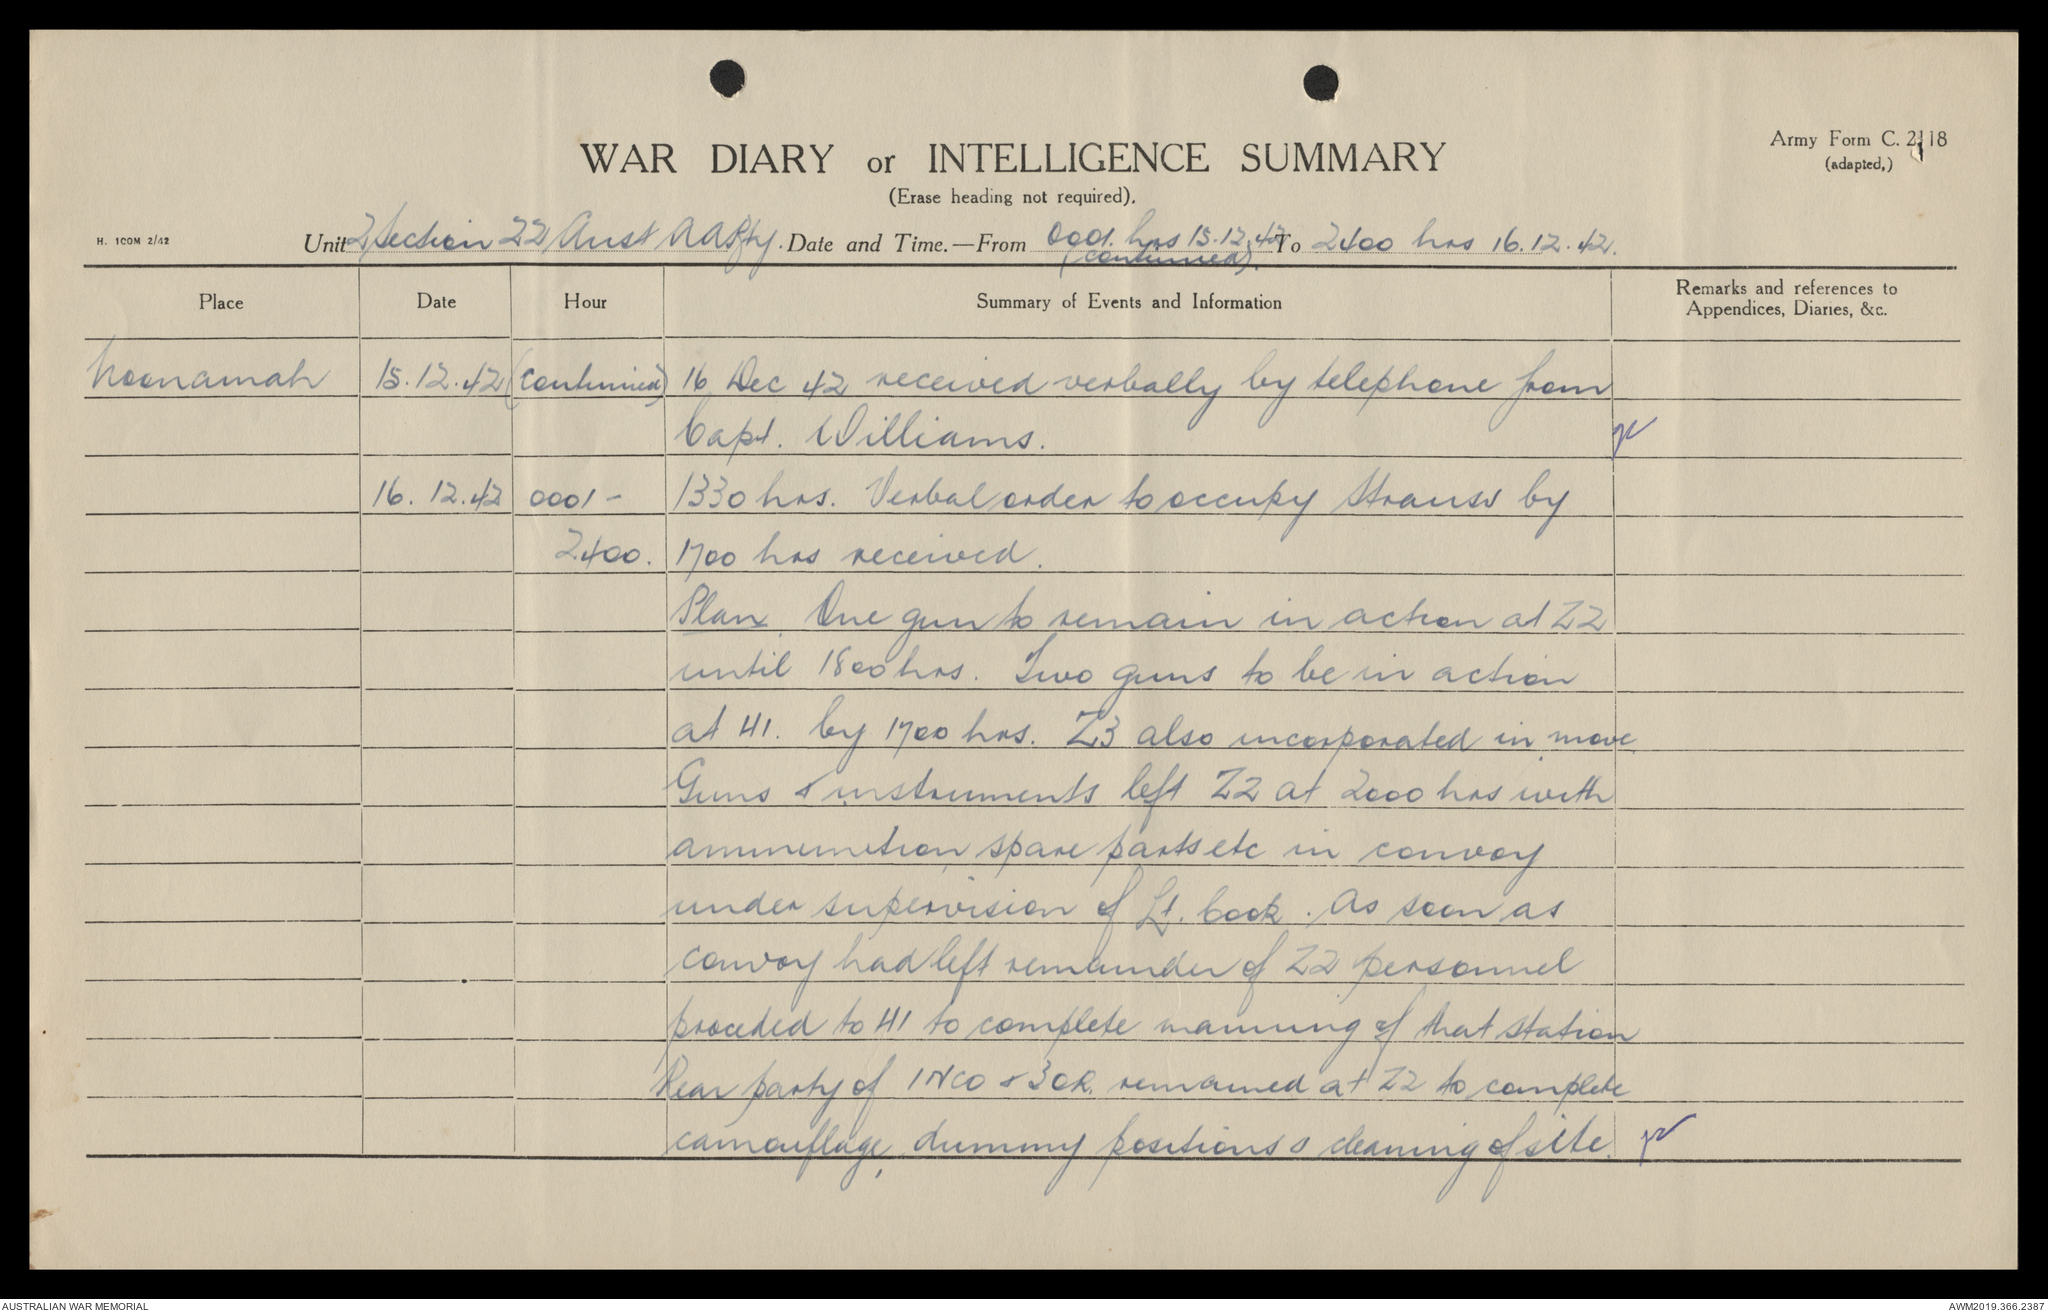 Army Form C. 2118
(adapted,)
WAR DIARY or INTELLIGENCE SUMMARY
(Erase heading not required).
H. 1COM 2/42
Unit 2 Section 22 Aust AA Bty. Date and Time.—From 0001. hrs 15.12.42 To 2400 hrs 16.12.42.
(continued).
Place Date Hour Summary of Events and Information Remarks and references to
Appendices, Diaries, &c.
Noonamah 15.12.42 (continued) 16 Dec 42 received verbally by telephone from
Capt. Williams.
16.12.42 0001 - 1330 hrs. Verbal order to occupy Strauss by
2400. 1700 hrs received.
Plan. One gun to remain in action at Z2
until 1800 hrs. Two guns to be in action
at H1. by 1700 hrs. Z3 also incorporated in move.
Guns & instruments left Z2 at 2000 hrs with
ammunition, spare parts etc in convoy
under supervision of Lt. Cook. As soon as
convoy had left remainder of Z2 personnel
proceded to H1 to complete manning of that station
Rear party of 1 NCO & 3 OR. remained at Z2 to complete
camouflage, dummy positions & cleaning of site.
AUSTRALIAN WAR MEMORIAL AWM2019.366.2387